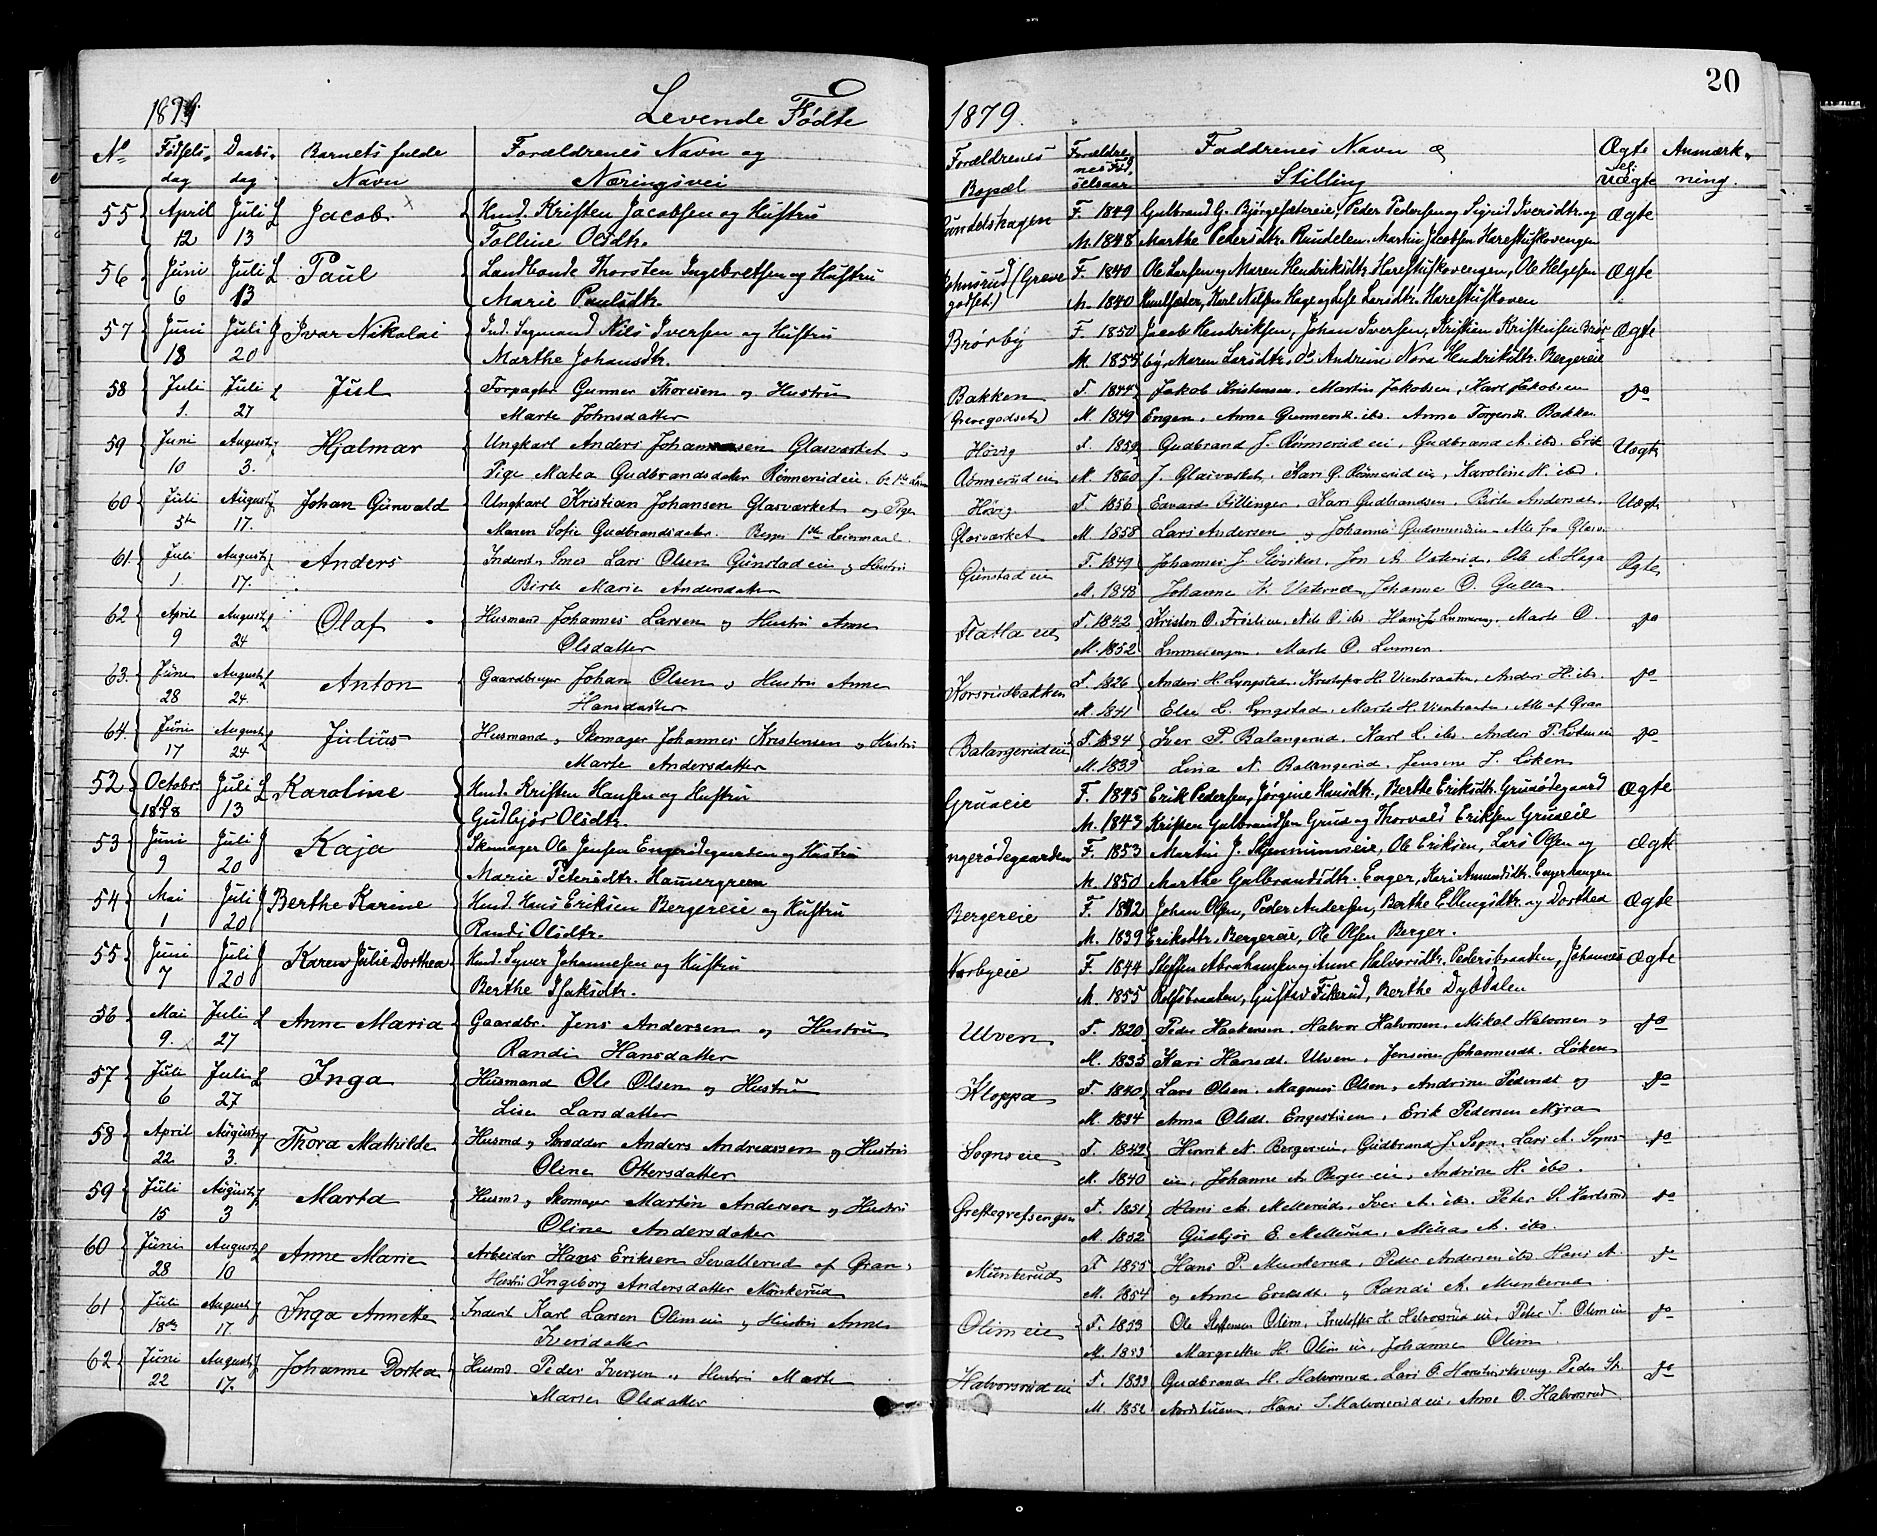 20
1879. Levende Fødte 1879.
No Fødsels- Daabs- Barnets fulde Forældrenes Navn og Forældrenes Forældre- Faddrenes Navn og Ægte Anmærk-
dag dag Navn Næringsvei Bopæl nes Fød- selsaar Stilling el. Uægte ning.
55 April Juli Jacob Husd. Kristen Jacobsen og Hustru Rundelshagen F. 1849 Gulbrand G. Bjørgesætereie, Peder Pedersen og Sigrid Iversdtr. og Ægte
12 13 Folline Olsdtr. M. 1848 Marthe Pedersdtr. Rundelen. Martin Jacobsen Harestuskovengen
56 Juni Juli Paul Landhande Thorsten Ingebretsen og Hustru Johnsrud (Greve F. 1840 Ole Larsen og Maren Hendriksdtr. Harestuskovengen, Ole Helgesen Ægte
6 13 Marie Paulsdtr. godset) M. 1840 Karl Nilsen Hage og Lise Larsdtr. Harestuskoven
57 Juni Juli Ivar Nikolai Ind. Sagmand Nils Iversen og Hustru Brørby F. 1850 Jacob Hendriksen, Johan Iversen, Kristian Kristensen Brør- Ægte
18 20 Marthe Johansdtr. M. 1855 by, Maren Larsdtr. do Andrine Nora Hendriksdtr. Bergereie
58 Juli Juli Jul Forpagter Gunner Thoresen og Hustru Bakken F. 1844 Jakob Kristensen, Martin Jakobsen, Karl Jakobsen do
1. 27 Marte Johnsdatter (Grevegodset) M. 1849 Engen, Anne Gunnersd. ibs. Anne Torgersd. Bakken
59 Juni August Hjalmar Ungkarl Anders Johannesen Glasværket, Høvig F. 1859 Gudbrand J. Rønnerud eie, Gudbrand A. ibs. Erik Uægte
10 3. Pige Matea Gudbrandsdatter Rønnerudeie. M. 1860 J. Glasværket, Kari G. Rønnerud eie, Karoline H. ibs.
60 Juli August Johan Gunvald Ungkarl Kristian Johansen Glasværket og Pige Høvig F. 1856 Edvard Sillinger, Lars Gudbrandsen, Birte Andersdt., Uægte
5te 17. Maren Sofie Gudbrandsdatter. Begges 1ste Leiermaal. Glasværket M. 1858 Lars Andersen og Johanne Gudmundsen Alle fra Glasv.
61. Juli August Anders Inderst & Smed Lars Olsen Gunstad eie og Hustru Gunstad eie F. 1849 Johannes J. Sløviken, Jon A. Vaterud, Ole A. Haga Ægte
1. 17. Birte Marie Andersdatter M. 1848 Johanne H. Vaterud, Johanne O. Gulla.
62 April August Olaf Husmand Johannes Larsen og Hustru Anne Flatla eie F. 1842 Kristen O. Frøslieeie, Nils O. ibs Hans L. Lunneeng, Marte O. do
9 24 Olsdatter M. 1852 Lunneeengen. Marte O. Lunnen.
63. Juni August Anton Gaardbruger Johan Olsen og Hustru Anne Korsrudbakken F. 1826 Anders H. Lyngstad, Kristofer H. Vienbraaten, Anders H. ibs. do
28 24. Hansdatter M. 1841 Else L. Lyngstad, Marte H. Vienbraaten, Alle af Gran
64. Juni August Julius Husmand & Skomager Johannes Kristensen og Hustru Balangerud eie F. 1834 Iver P. Balangerud, Karl L. ibs. Anders P. Løken eie do
17 24 Marte Andersdatter M. 1839 Lina N. Balangerud, Jensine J. Løken
52 Octobr Juli Karoline Husd. Kristen Hansen og Hustru Gruseie F. 1845 Erik Pedersen, Jørgine Hansdtr., Berthe Eriksdtr. Grusødegaard Ægte
1878 13 Gudbjør Olsdtr. M. 1843 Kristen Gulbrandsen Grus og Thorvald Eriksen Gruseie
53 Juni Juli Kaja Skomager Ole Jensen Engerødegaarden og Hustru Engerødegaarden F. 1853 Martin J. Skjenumseie, Ole Eriksen, Lars Olsen og Ægte
9 20 Marie Petersdtr. Hammergreen M. 1850 Marthe Gulbrandsdtr. Enger, Kari Amundsdtr. Engerhaugen
54 Mai Juli Berthe Karine Husd. Hans Eriksen Bergereie og Hustru Bergereie F. 1842 Johan Olsen, Peder Andersen, Berthe Ellingsdtr. og Dorthea Ægte
1 20 Randi Olsdtr. M. 1839 Eriksdtr. Bergereie, Ole Olsen Berger.
55 Juni Juli Karen Julie Dorthea Husd. Syver Johannesen og Hustru Norbyeie F. 1844 Steffen Abrahamsen og Anne Halvorsdtr. Pedersbraaten, Johannes Ægte
7 20 Berthe Isaksdtr. M. 1855 Rolfsbraaten, Gustav Fikerud, Berthe Dybdalen
56 Mai Juli Anne Maria Gaardbr. Jens Andersen og Hustru Ulven F. 1820 Peder Haakensen, Halvor Halvorsen, Mikal Halvorsen & do
9. 27 Randi Hansdatter M. 1835 Kari Hansdt. Ulven, Jensine Johannesdt. Løken
57 Juli Juli Inga Husmand Ole Olsen og Hustru Kloppa F. 1840 Lars Olsen, Magnus Olsen, Andrine Pedersdt og do
6 27 Lise Larsdatter M. 1834 Anne Olsdt. Engestuen, Erik Pedersen Myra
58 April August Thora Mathilde Husmd & Skrædder Anders Andreassen og Hustru Sogns eie F. 1842 Henrik N. Bergereie, Gudbrand J. Sogn, Lars A. Sogns- do
22. 3. Oline Ottersdatter M. 1840 eie, Johanne A. Berger eie, Andrine H. ibs.
59 Juli August Marta Husmd & Skomager Martin Andersen og Hustru Greftegrefsengen F. 1851 Hans A. Mellerud, Iver A. ibs. Peter S. Karlsrud do
15 3 Oline Andersdatter M. 1852 Gudbjør E. Mellerud, Milla A. ibs.
60 Juni August Anne Marie Arbeider Hans Eriksen Sevallerud af Gran & Munkerud F. 1855 Hans P. Munkerud, Peder Andersen ibs Hans A. do
28 10 Hustru Ingeborg Andersdatter Munkerud M. 1854 og Anne Eriksdt. & Randi A. Munkerud
61 Juli August Inga Annette Inderst Karl Larsen Olimeie og Hustru Anne Olim eie F. 1853 Ole Steffensen Olim, Kristoffer H. Halvorsrud eie, Peter S. Olim eie do
18de 17. Iversdatter M. 1853 Margrethe H. Olim eie, Johanne Olim
62 Juni August Johanne Dorthea Husmd. Peder Iversen og Hustru Marte Halvorsrud eie F. 1833 Gudbrand H. Halvorsrud, Lars O. Harestuskoveng, Peder St. do
22 17. Marie Olsdatter M. 1852 Nordstuen, Hans S. Halvorsrud eie, Anne O. Halvorsrud